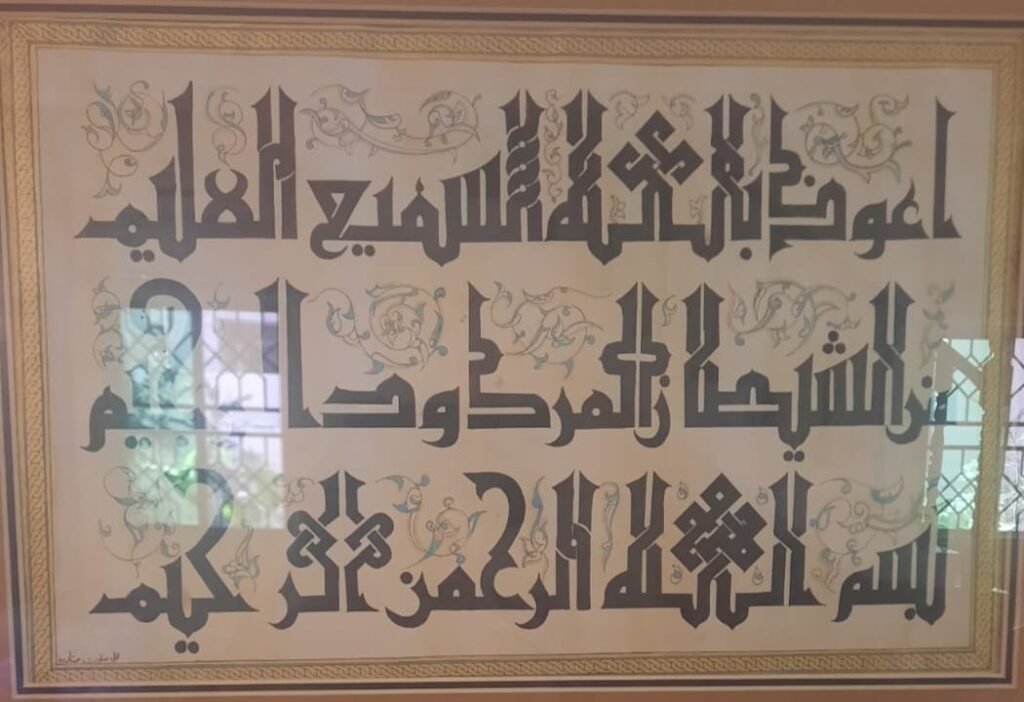 اعوذ بالله السميع العليم
من الشيطان المردود
بسم الله الرحمن الرحيم